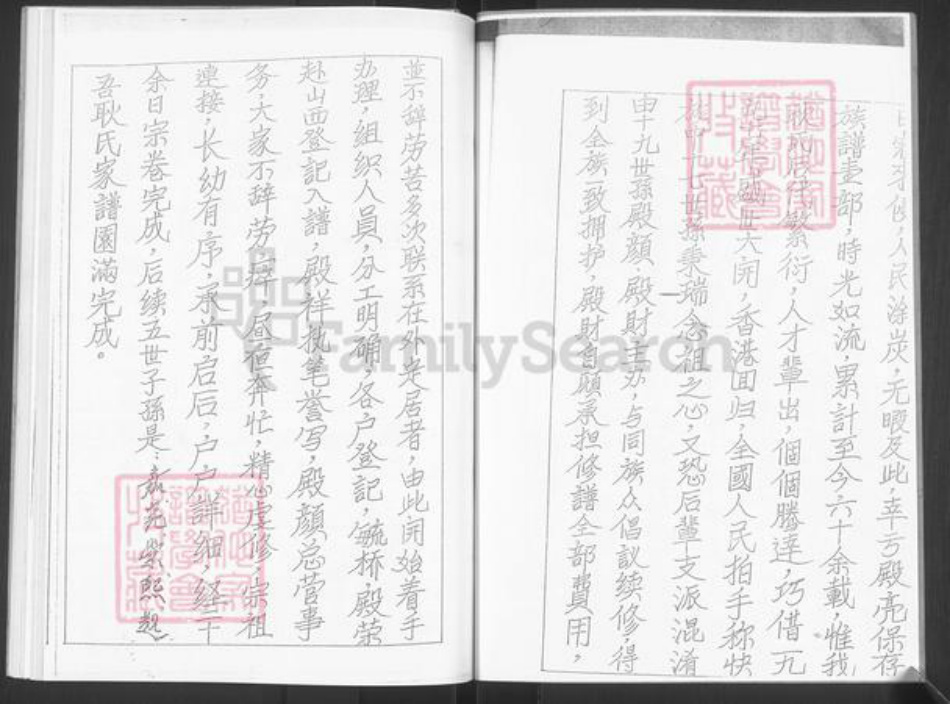 人民涂炭,无暇及此,幸亏殿亮保存
族譜壹部,時光如流,累計至今六十余載,惟我
耿氏后代繁衍,人才輩出,個個勝達,巧借一九
盛世大開,香港回归,全國人民拍手称快
十七世孫秉瑞念祖之心,又恐后輩支派混淆
由十九世孫殿顔、殿財主办,与同族众倡議续修,得
到全族一致拥护,殿財自願承担修譜全部費用,
並不辞劳苦多次联系在外定居者,由此開始着手
办理,組织人員,分工明确,各户登記,毓桥、殿荣
赴山西登記入譜,殿祥执笔誉写,殿顔总营事
务,大家不辞劳苦,昼夜奔忙,精心虚修,宗祖
連接,长幼有序,承前启后,户户詳细,经二十
余日宗卷完成,后续五世子孫是:
吾耿氏家譜園滿完成。
FamilySearch